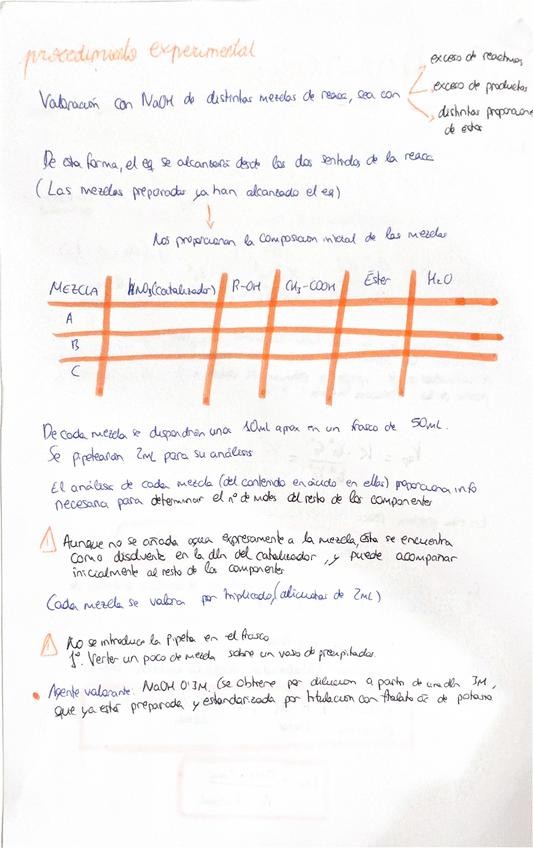 procedimiento experimental
Valoración con NaOH de distintas mezclas de reacc, sea con
exceso de reactivos
exceso de productos
distintas proporciones
de ester
De esta forma, el eq se alcanzará desde los dos sentidos de la reacc
(Las mezclas preparadas ya han alcanzado el eq)
↓
Nos proporcionan la composición inicial de las mezclas
MEZCLA HNO3(catalizador) R-OH CH3-COOH Éster H2O
A
B
C
De cada mezcla se dispondrán unos 10mL aprox en un frasco de 50mL.
Se pipetearán 2mL para su análisis
El análisis de cada mezcla (del contenido en ácido en ellas) proporciona info
necesaria para determinar el nº de moles del resto de los componentes
Aunque no se añada agua expresamente a la mezcla, ésta se encuentra
como disolvente en la dln del catalizador, y puede acompañar
inicialmente al resto de los componentes
Cada mezcla se valora por triplicado (alicuotas de 2mL)
No se introduce la pipeta en el frasco
1º. Verter un poco de mezcla sobre un vaso de precipitados
• Agente valorante: NaOH 0'3M. (se obtiene por dilución a partir de una dln 3M,
que ya está preparada y estandarizada por titulación con ftalato ác de potasio